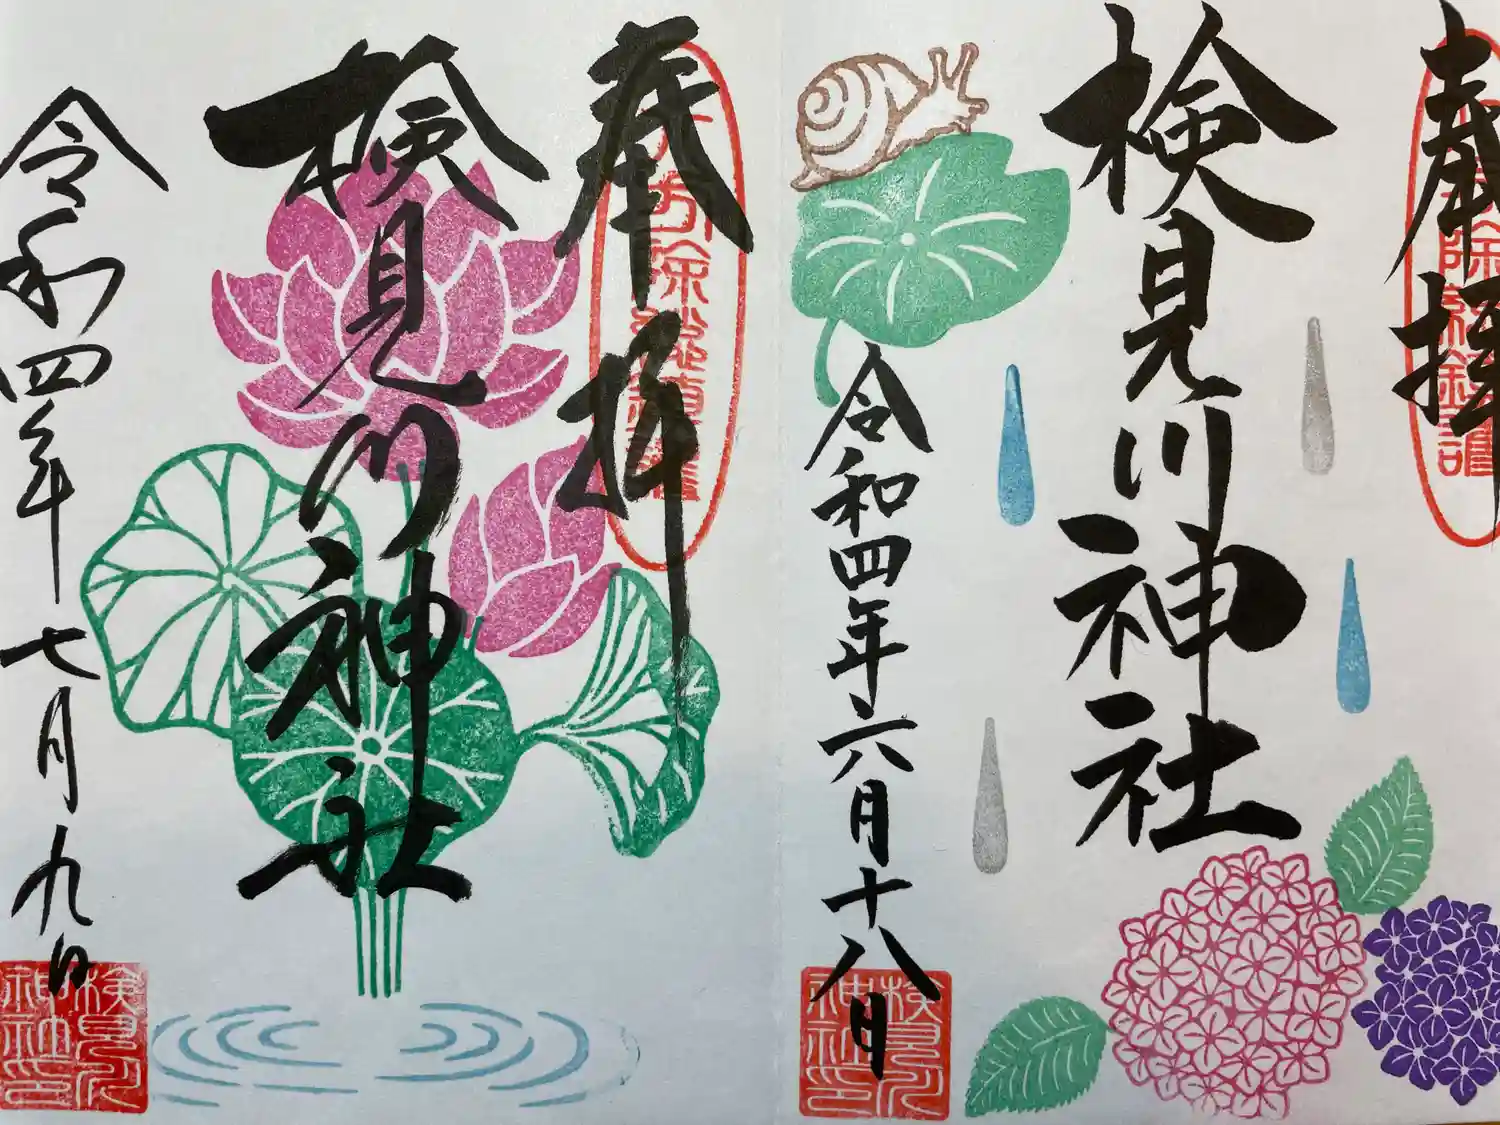 奉拝
検見川神社
令和四年六月十八日
検見川神社
奉拝
検見川神社
令和四年七月九日
検見川神社